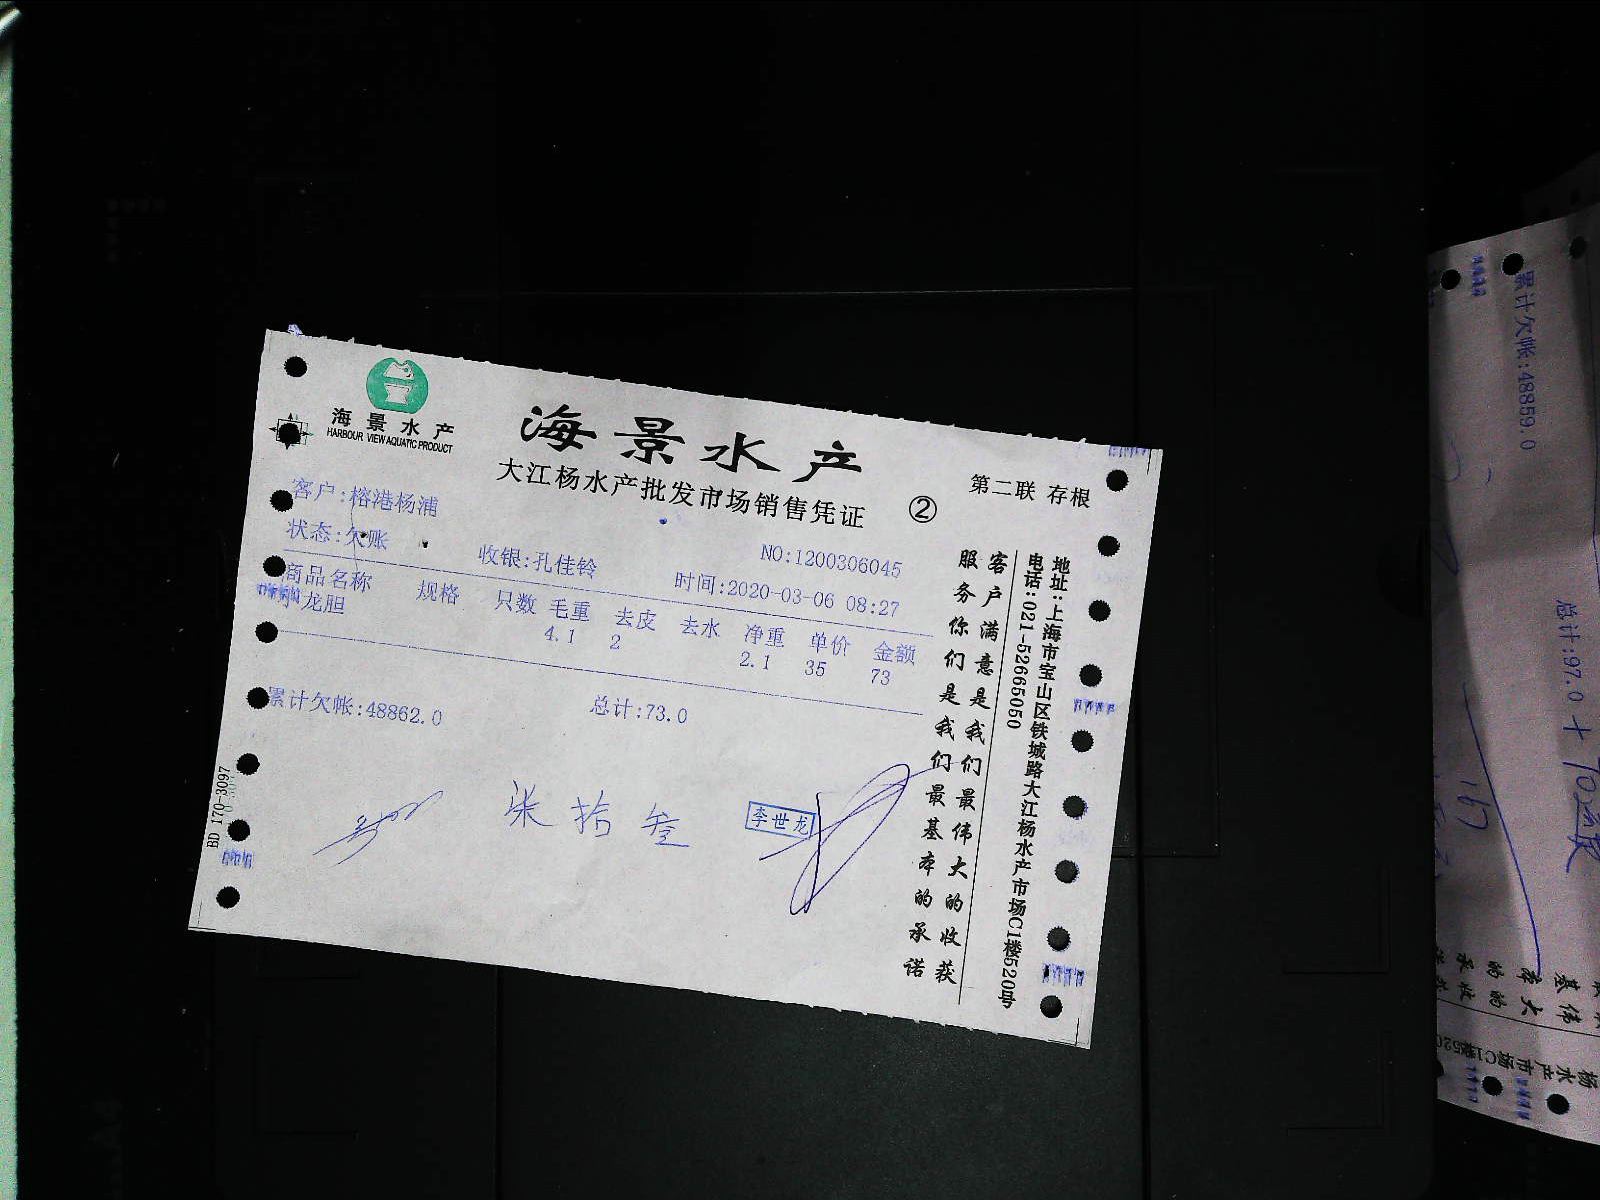 海景水产
HARBOUR VIEW AQUATIC PRODUCT
海景水产
大江杨水产批发市场销售凭证
②
第二联 存根
客户:榕港杨浦
状态:欠账
收银:孔佳铃
NO:1200306045
时间:2020-03-06 08:27
商品名称 规格 只数 毛重 去皮 去水 净重 单价 金额
小龙胆 4.1 2 2.1 35 73
累计欠帐:48862.0
总计:73.0
柒拾叁
李世龙
BD 170-3097
客户满意是我们最伟大的收获
服务你们是我们最基本的承诺
地址:上海市宝山区铁城路大江杨水产市场C1楼520号
电话:021-52665050
累计欠帐:48859.0
总计:97.0 + 70